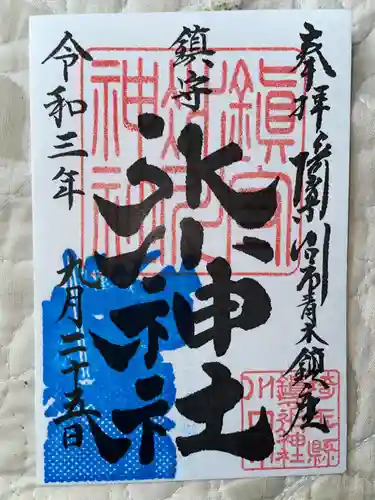 奉拝
川口市青木鎮座
鎮守
氷川神社
令和三年
九月二十五日
鎮守
氷川
神社
埼玉縣
鎮守氷川神社
川口